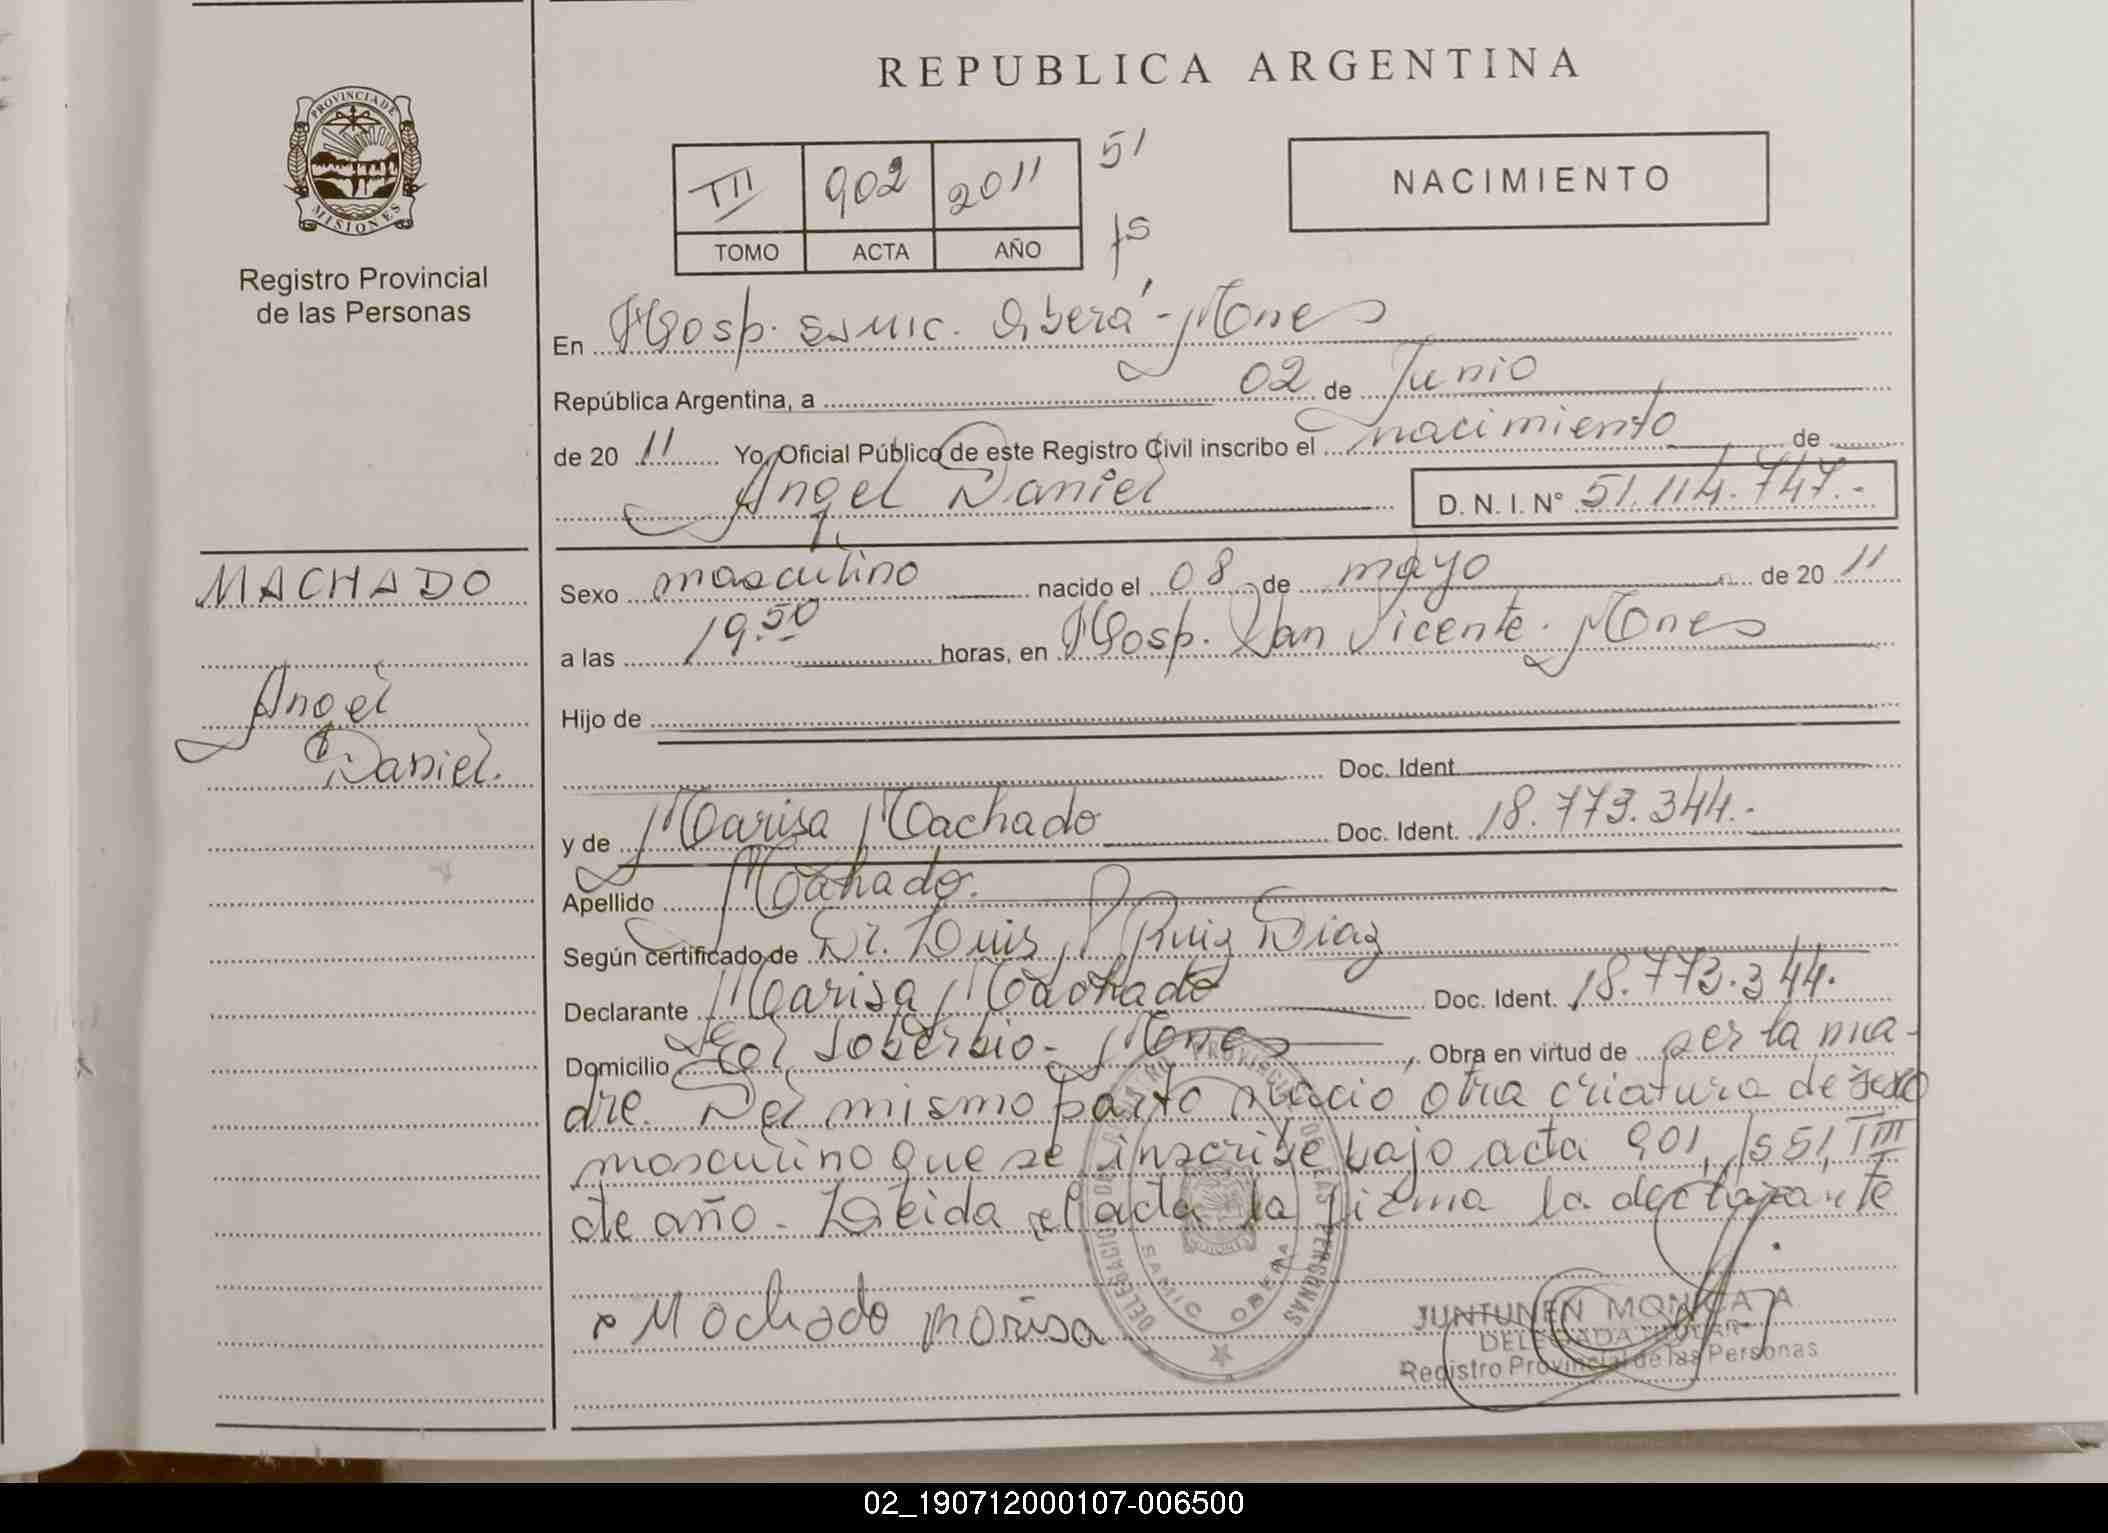 REPUBLICA ARGENTINA
PROVINCIA DE
MISIONES
Registro Provincial
de las Personas
TIII 902 2011 51
TOMO ACTA AÑO fs
NACIMIENTO
En Hosp. SAMIC. Oberá - Mnes
República Argentina, a 02 de Junio
de 20 11 Yo, Oficial Público de este Registro Civil inscribo el nacimiento de
Angel Daniel D. N. I. N° 51.114.747.-
MACHADO
Angel
Daniel.
Sexo masculino nacido el 08 de mayo de 20 11
a las 19.50 horas, en Hosp. San Vicente. Mnes
Hijo de
Doc. Ident.
y de Marisa Machado Doc. Ident. 18.773.344.-
Apellido Machado.
Según certificado de Dr. Luis Ruiz Diaz
Declarante Marisa Machado Doc. Ident. 18.773.344.
Domicilio El Soberbio - Mnes, Obra en virtud de ser la ma-
dre. Del mismo parto nació otra criatura de sexo
masculino que se inscribe bajo acta 901, fs 51, TIII
de año. Leida el acta la firma la declarante
x Machado Marisa
DELEGACION
SAMIC OBERA
JUNTUNEN MONICA A
DELEGADA TITULAR
Registro Provincial de las Personas
02_190712000107-006500